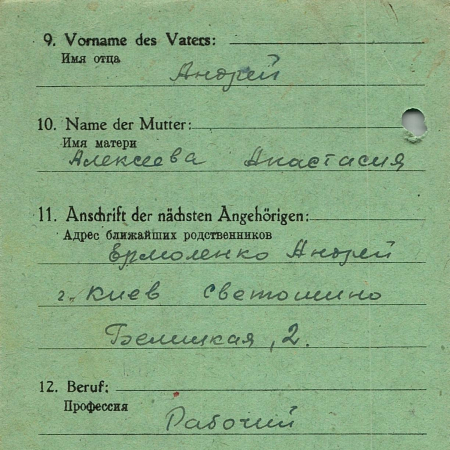 9. Vorname des Vaters:
Имя отца
Андрей
10. Name der Mutter:
Имя матери
Алексеева Анастасия
11. Anschrift der nächsten Angehörigen:
Адрес ближайших родственников
Ермоленко Андрей
г. Киев Светошино
Белицкая, 2.
12. Beruf:
Профессия
Рабочий